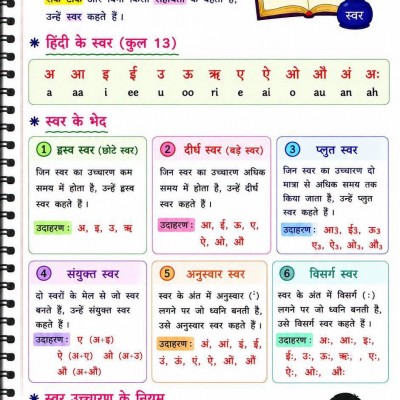 उन्हें स्वर कहते हैं ।
स्वर
* हिंदी के स्वर (कुल 13)
अ आ इ ई उ ऊ ऋ ए ऐ ओ औ अं अः
a aa i ee u oo ri e ai o au an ah
* स्वर के भेद
1 ह्रस्व स्वर (छोटे स्वर)
जिन स्वर का उच्चारण कम
समय में होता है, उन्हें ह्रस्व
स्वर कहते हैं ।
उदाहरण : अ, इ, उ, ऋ
2 दीर्घ स्वर (बड़े स्वर)
जिन स्वर का उच्चारण अधिक
समय में होता है, उन्हें दीर्घ
स्वर कहते हैं ।
उदाहरण : आ, ई, ऊ, ए,
ऐ, ओ, औ
3 प्लुत स्वर
जिन स्वर का उच्चारण दो
मात्रा से अधिक समय तक
किया जाता है, उन्हें प्लुत
स्वर कहते हैं ।
उदाहरण : आ3, ई3, ऊ3
ए3, ऐ3, ओ3, औ3
4 संयुक्त स्वर
दो स्वरों के मेल से जो स्वर
बनते हैं, उन्हें संयुक्त स्वर
कहते हैं ।
उदाहरण : ए (अ+इ)
ऐ (अ+ए) ओ (अ+उ)
औ (अ+औ)
5 अनुस्वार स्वर
स्वर के अंत में अनुस्वार (ं)
लगने पर जो ध्वनि बनती है,
उसे अनुस्वार स्वर कहते हैं ।
उदाहरण : अं, आं, इं, ईं,
उं, ऊं, एं, ऐं, ओं, औं
6 विसर्ग स्वर
स्वर के अंत में विसर्ग (ः)
लगने पर जो ध्वनि बनती है,
उसे विसर्ग स्वर कहते हैं ।
उदाहरण : अः, आः, इः,
ईः, उः, ऊः, ऋः, , एः,
ऐः, ओः, औः
* स्वर उच्चारण के नियम